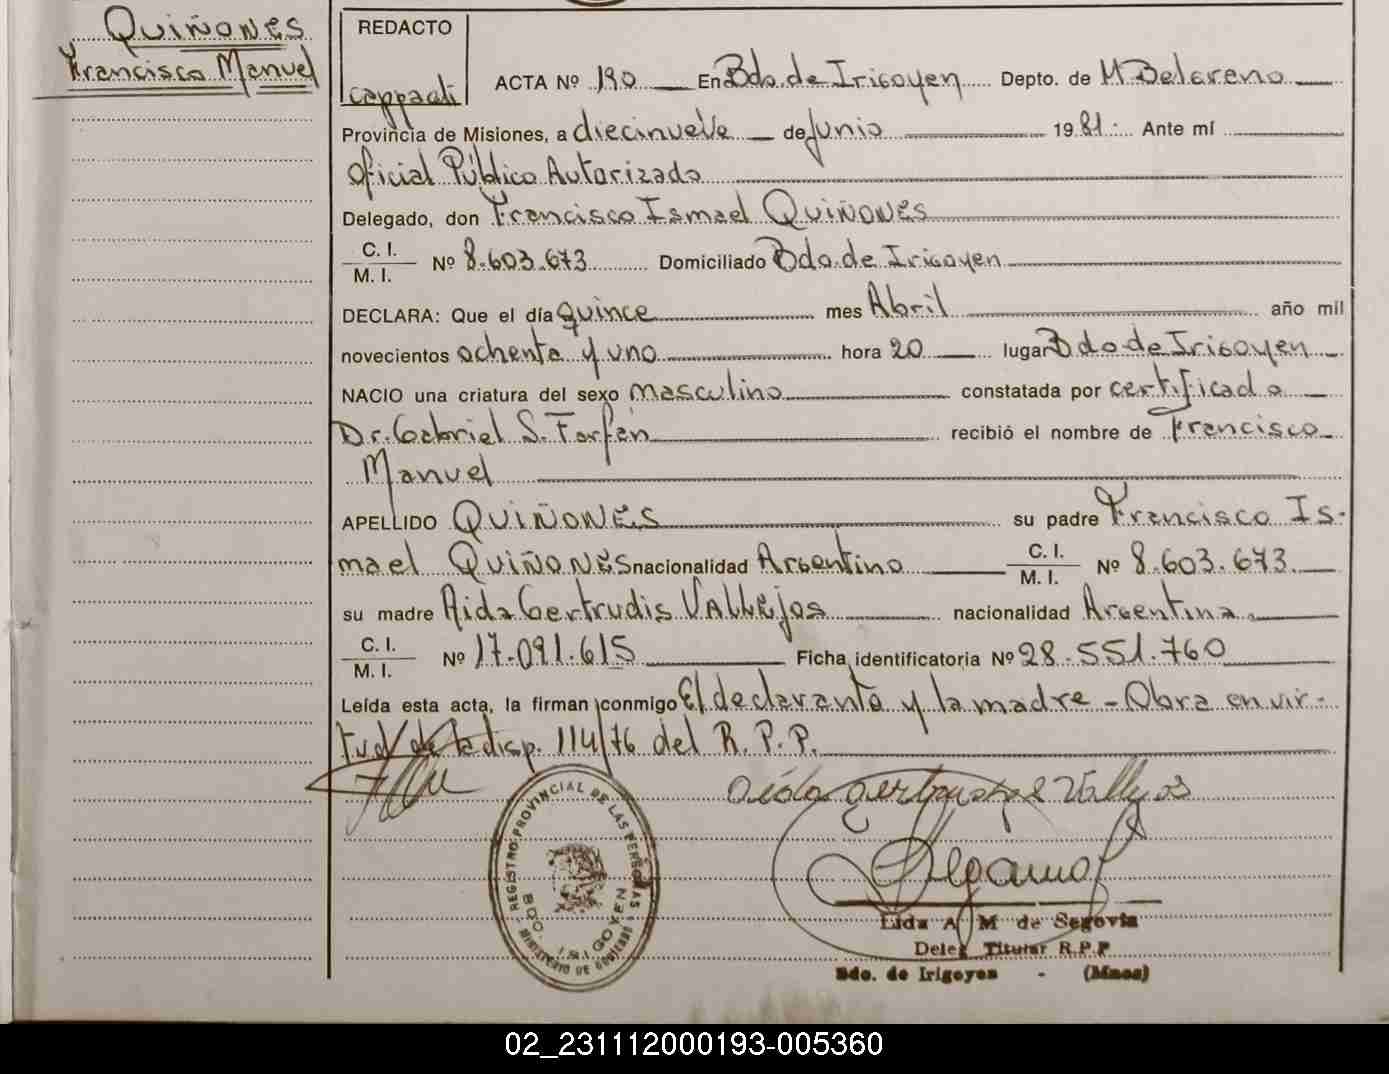 QUIÑONES
Francisco Manuel
REDACTO
ACTA Nº 190 En Bdo. de Irigoyen Depto. de M. Belgrano
Provincia de Misiones, a diecinueve de Junio 1981. Ante mí
Oficial Público Autorizado
Delegado, don Francisco Ismael QUIÑONES
C. I.
M. I. Nº 8.603.673 Domiciliado Bdo. de Irigoyen
DECLARA: Que el día quince mes Abril año mil
novecientos ochenta y uno hora 20 lugar Bdo de Irigoyen
NACIO una criatura del sexo masculino constatada por certificado
Dr. Gabriel S. Farfán recibió el nombre de Francisco
Manuel
APELLIDO QUIÑONES su padre Francisco Is-
mael QUIÑONES nacionalidad Argentino C. I. M. I. Nº 8.603.673.
su madre Aida Gertrudis VALLEJOS nacionalidad Argentina
C. I.
M. I. Nº 17.091.615 Ficha identificatoria Nº 28.551.760
Leída esta acta, la firman conmigo El declarante y la madre - Obra en vir-
tud de la disp. 114/76 del R. P. P.
Aida Gertrudis Vallejos
REGISTRO PROVINCIAL DE LAS PERSONAS
BDO. IRIGOYEN
MINISTERIO DE GOBIERNO
Lida A M de Segovia
Deleg Titular R.P.P
Bdo. de Irigoyen - (Mnes)
02_231112000193-005360